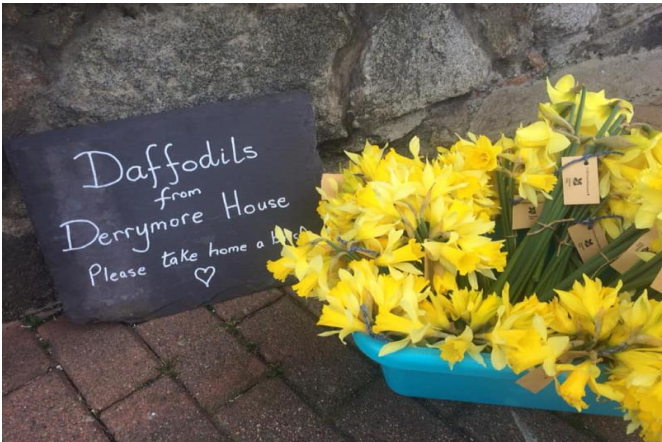 Daffodils
from
Derrymore House
Please take home a